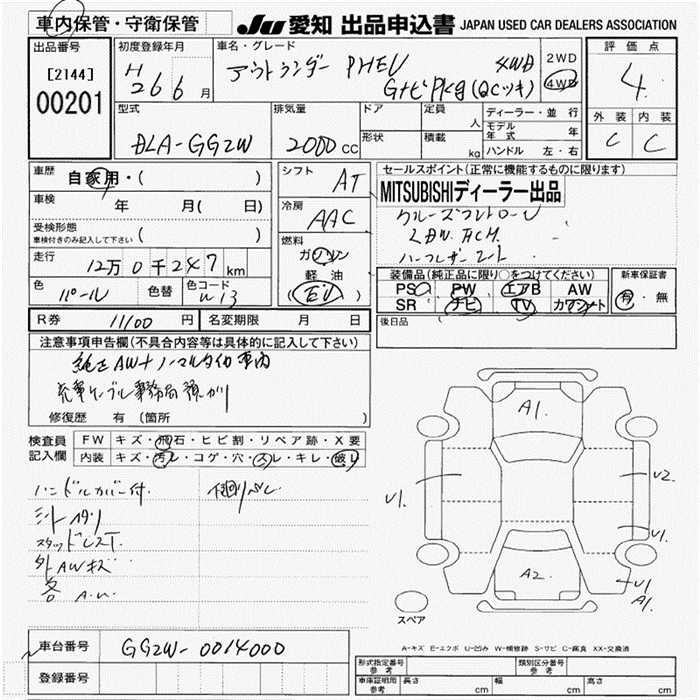 車内保管・守衛保管
JU 愛知 出品申込書 JAPAN USED CAR DEALERS ASSOCIATION
出品番号
[2144]
00201
初度登録年月
H26 6 月
車名・グレード
アウトランダー PHEV 4WD
GナビPkg(QCツキ)
2WD
4WD
評価点
4
外装 内装
C C
型式
DLA-GG2W
排気量
2000 cc
ドア
形状
定員 人
積載 kg
ディーラー・並行
モデル年式 年
ハンドル 左・右
車歴 自家用・( )
車検 年 月( 日)
受検形態
車検付きのみ記入して下さい ( )
走行 12万0千247 km
色 パール 色替 色コード W13
シフト AT
冷房 AAC
燃料
ガソリン
軽油
(EV)
セールスポイント(正常に機能するものに限ります)
MITSUBISHIディーラー出品
クルーズコントロール
LDW. FCM.
ハーフレザーシート
装備品(純正品に限り○をつけてください)
PS PW エアB AW
SR ナビ TV カワシート
新車保証書
有・無
R券 11100 円
名変期限 月 日
後日品
注意事項申告欄(不具合内容等は具体的に記入して下さい)
純正AW+ノーマルタイヤ車内
充電ケーブル事務局預かり
修復歴 有(箇所 )
検査員記入欄
FW キズ・飛石・ヒビ割・リペア跡・X要
内装 キズ・汚レ・コゲ・穴・スレ・キレ・破レ
ハンドルカバー付.
シート
スタッドレスT.
外AWキズ
各 A.U.
下廻りサビ
A1.
U1.
U2.
U1.
U1
A1.
A2.
スペア
A-キズ E-エクボ U-凹み W-補修跡 S-サビ C-腐食 XX-交換済
車台番号 GG2W-0014000
登録番号
形式指定番号 参考
類別区分番号 参考
車庫証明用 参考 長さ cm 幅 cm 高さ cm